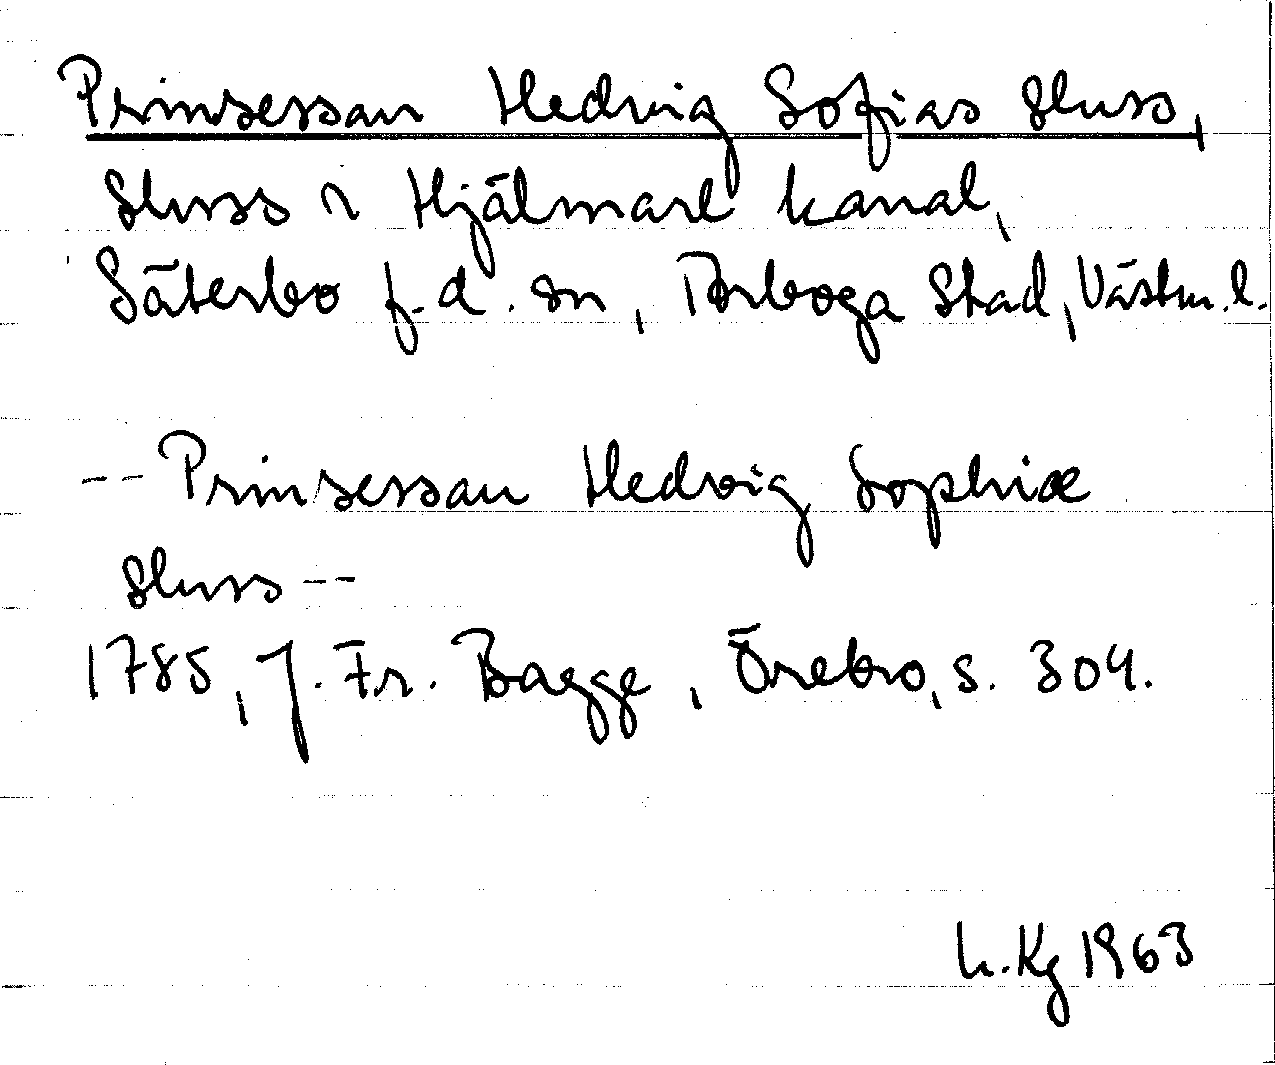 Prinsessan Hedvig Sofias sluss,
sluss i Hjälmare kanal,
Säterbo f.d. sn, Arboga stad, Västm. l.
-- Prinsessan Hedvig Sophiæ
sluss --
1785, J. Fr. Bagge, Örebro, s. 304.
Kg 1963